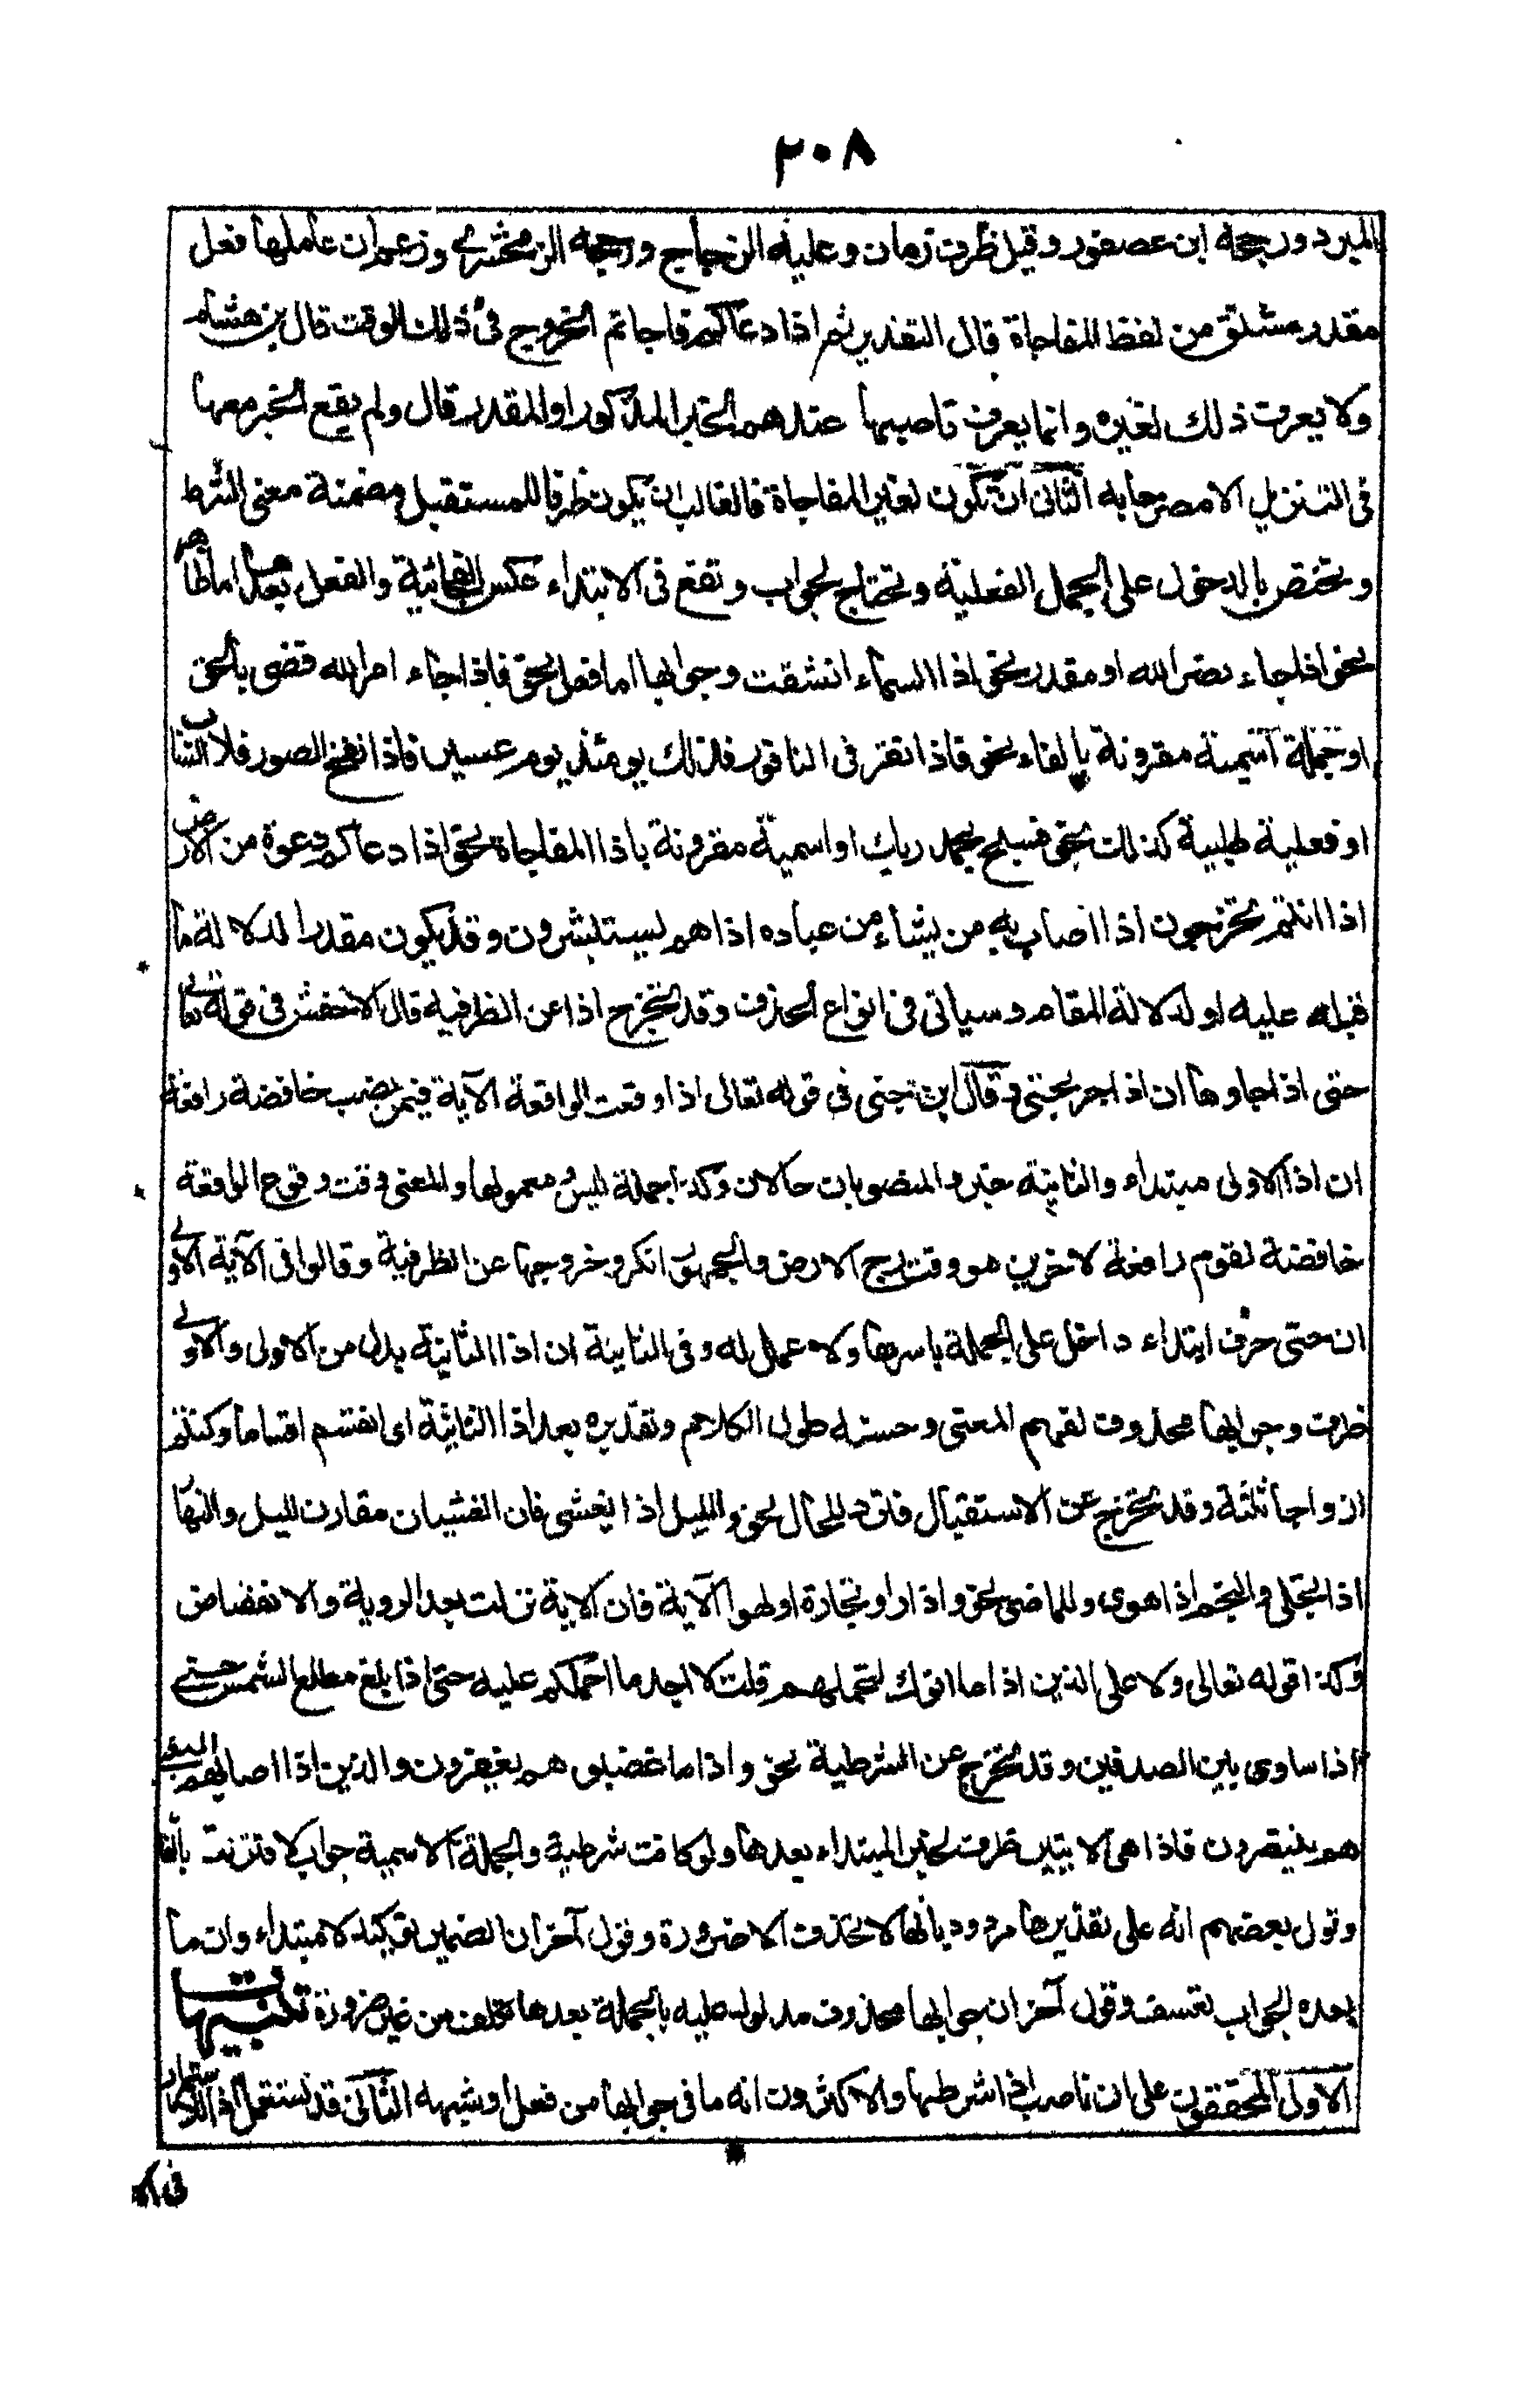 ٢٠٨
المبرد ورجحه ابن عصفور وقيل ظرف زمان وعليه الزجاج ورجحه الزمخشري وزعم ان عاملها فعل
مقدر مشتق من لفظ المفاجاة قال التقدير ثم اذا دعاكم فاجاتم الخروج في ذلك الوقت قال بن هشام
ولا يعرف ذلك لغيره وانما يعرف ناصبها عندهم الخبر المذكور او المقدر قال ولم يقع الخبر معها
في التنزيل الا مصرحا به الثاني ان تكون لغير المفاجاة فالغالب ان يكون ظرفا للمستقبل مضمنة معنى الشرط
وتختص بالدخول على الجمل الفعلية وتحتاج لجواب وتقع في الابتداء عكس الفجائية والفعل بعدها اما ظاهر
نحو اذا جاء نصر الله او مقدر نحو اذا السماء انشقت وجوابها اما فعل نحو فاذا جاء امر الله قضى بالحق
او جملة اسمية مقرونة بالفاء نحو فاذا نقر في الناقور فذلك يومئذ يوم عسير فاذا نفخ الصور فلا انساب
او فعلية طلبية كذلك نحو فسبح بحمد ربك او اسمية مقرونة باذا المفاجاة نحو اذا دعاكم دعوة من الارض
اذا انتم تخرجون اذا اصاب به من يشاء من عباده اذا هم يستبشرون وقد يكون مقدرا لدلالة ما
قبله عليه او لدلالة المقام وسياتي في انواع الحذف وقد تخرج اذا عن الظرفية قال الاخفش في قوله تعالى
حتى اذا جاوها ان اذا جر بحتى وقال ابن جنى في قوله تعالى اذا وقعت الواقعة الآية فيمن نصب خافضة رافعة
ان اذا الاولى مبتداء والثانية خبر والمنصوبان حالان وكذا جملة ليس ومعمولها والمعنى وقت وقوع الواقعة
خافضة لقوم رافعة لاخرين هو وقت رج الارض والجمهور انكرو خروجها عن الظرفية وقالوا في الآية الاولى
ان حتى حرف ابتداء داخل على الجملة باسرها ولا عمل له وفي الثانية ان اذا الثانية بدل من الاولى والاولى
ظرف وجوابها محذوف لفهم المعنى وحسنه طول الكلام وتقديره بعد اذا الثانية اى انقسم اقساما وكنتم
ازواجا ثلثة وقد تخرج عن الاستقبال فترد للحال نحو والليل اذا يغشى فان الغشيان مقارن لليل والنهار
اذا تجلى والنجم اذا هوى وللماضى نحو واذا راو تجارة او لهوا الآية فان الاية نزلت بعد الروية والانفضاض
وكذا قوله تعالى ولا على الذين اذا ما اتوك لتحملهم قلت لا اجد ما احملكم عليه حتى اذا بلغ مطلع الشمس حتى
اذا ساوى بين الصدفين وقد تخرج عن الشرطية نحو واذا ما غضبو هم يغفرون والذين اذا اصابهم البغى
هم ينتصرون فاذا فى الايتين ظرف لخبر المبتداء بعدها ولو كانت شرطية والجملة الاسمية جواب لاقترنت بالفا
وقول بعضهم انه على تقديرها مردود بانها لا تحذف الا ضرورة وقول آخر ان الضمير توكيد لا مبتداء وان ما
بعده الجواب تعسف وقول آخر ان جوابها محذوف مدلول عليه بالجملة بعدها تكلف من غير ضرورة تنبيهات
الاولى المحققون على ان ناصب اذا شرطها والاكثرون انه ما في جوابها من فعل او شبهه الثاني قد تستعمل اذا للاستمرار